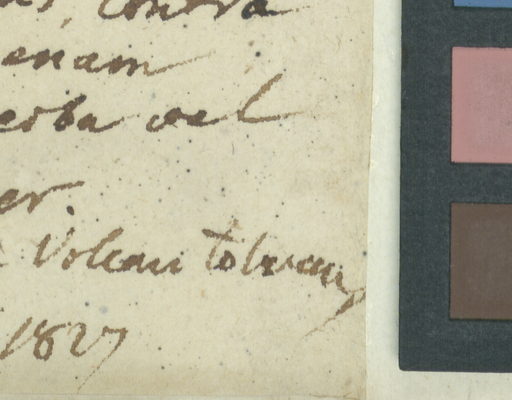 contra
enam
erba vel
er.
Volcan toluca
1827